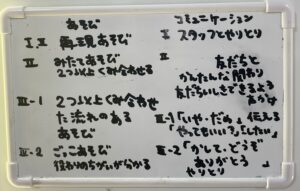 あそび
I.II 再現あそび
III みたてあそび
2つ以上くみ合わせる
III-1 2つ以上くみ合わせ
た流れのある
あそび
III-2 ごっこあそび
役わりのちがいが分かる
コミュニケーション
I スタッフとやりとり
II 友だちと
かんたんな関わり
友だちいしきできるよう
III-1 「いや・だめ」伝える
「やってもいい?」「したい」
III-2 「かして、どうぞ
ありがとう
やりとり